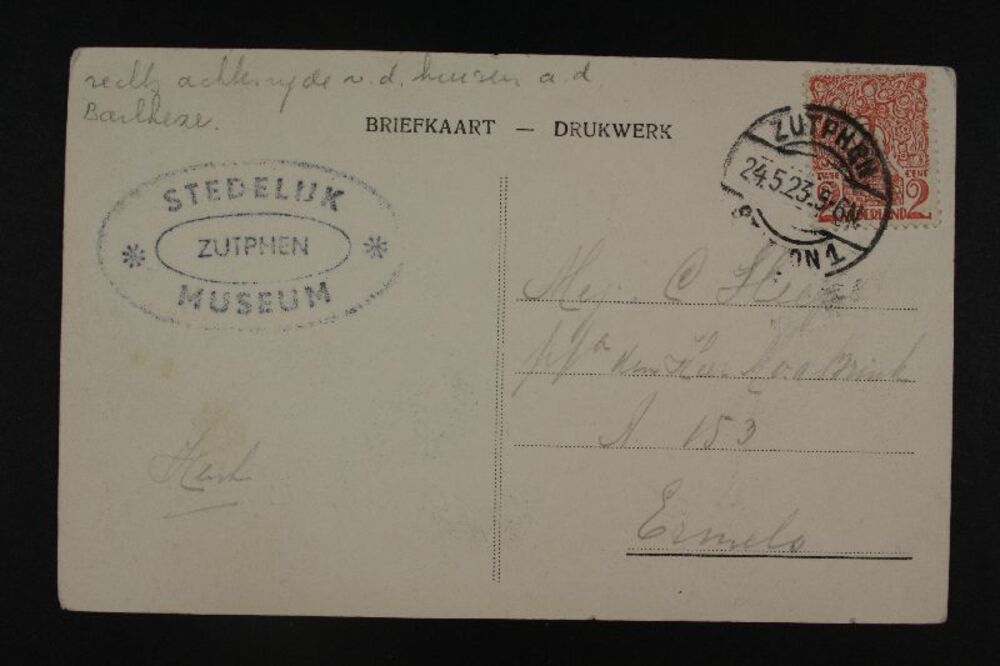 rechts achterzijde v.d. huizen a.d.
Barlheze.
BRIEFKAART — DRUKWERK
STEDELIJK
ZUTPHEN
MUSEUM
ZUTPHEN
24.5.23.5-6N
STATION 1
CENT
2 2
NEDERLAND
Mej. C
p/a den Brink
A 153
Ermelo
Henk